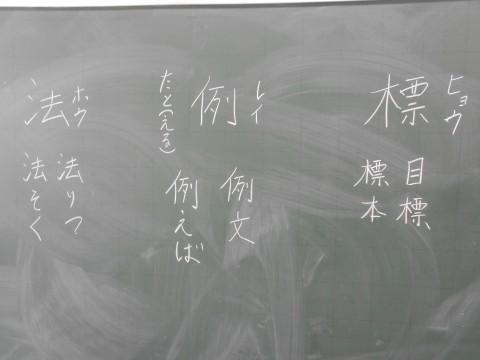 標
ヒョウ
目標
標本
例
レイ
たと(える)
例文
例えば
法
ホウ
法りつ
法そく